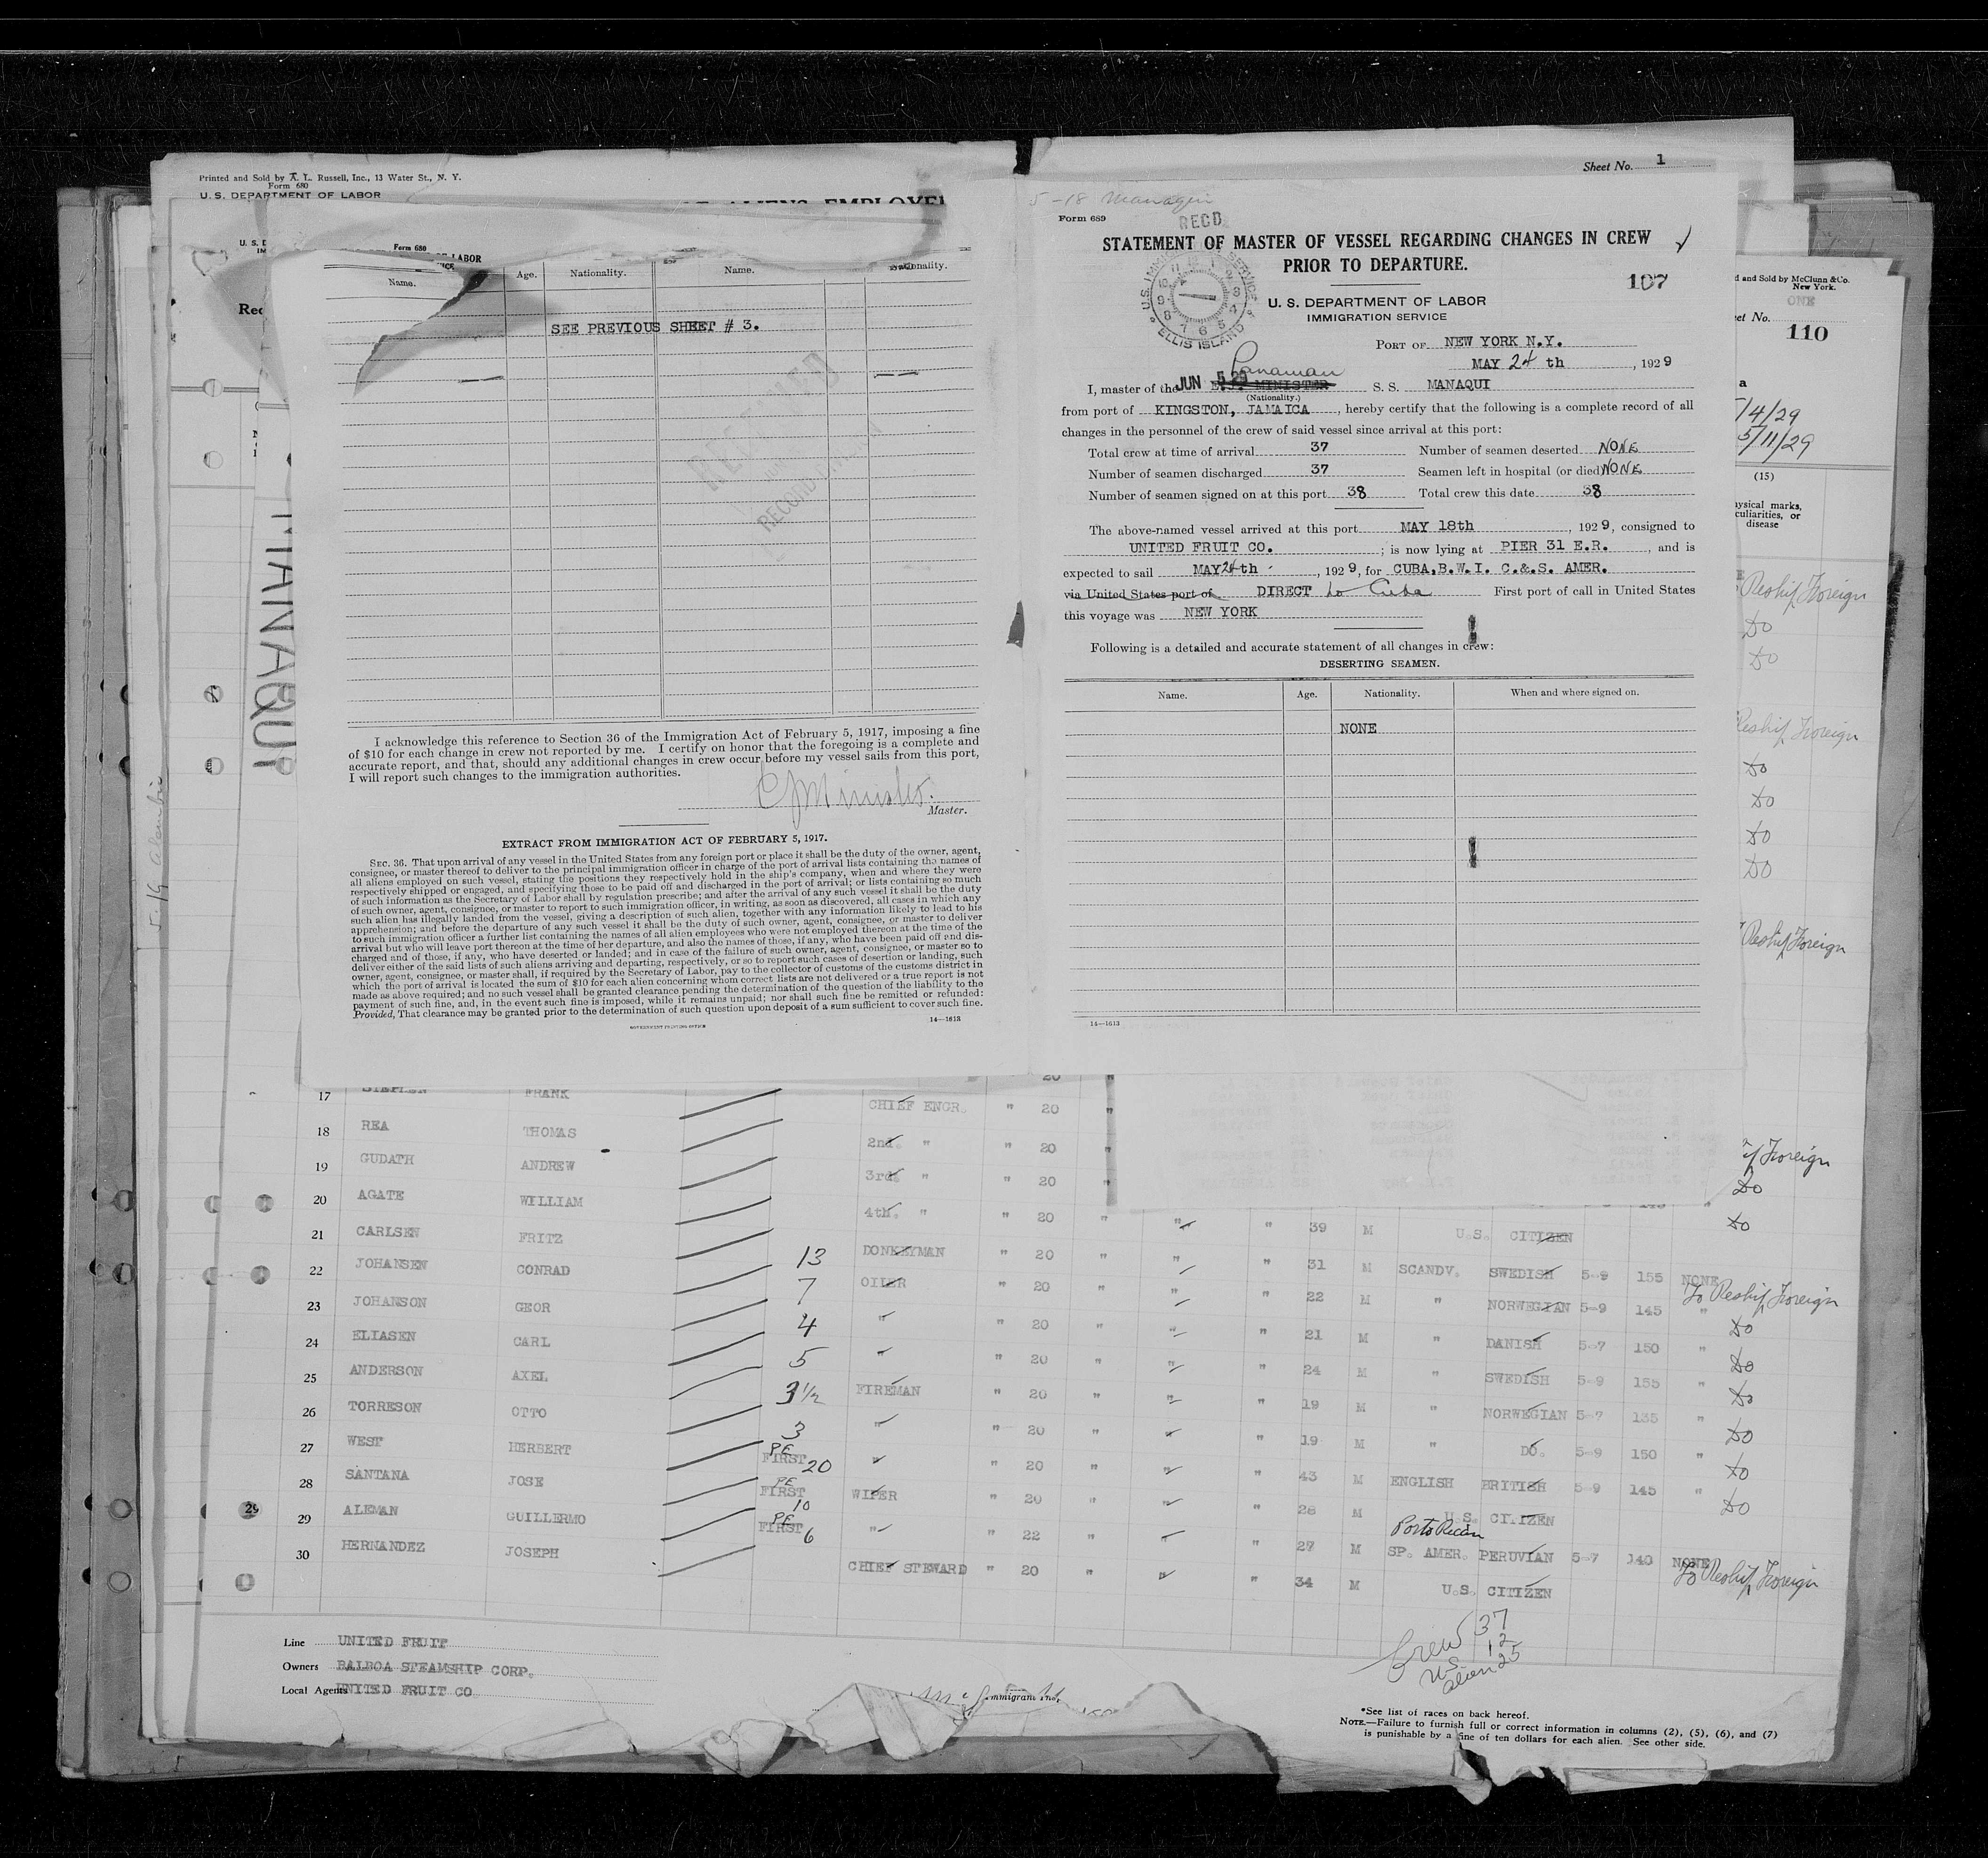 Printed and Sold by A. L. Russell, Inc., 13 Water St., N. Y.
Form 680
U. S. DEPARTMENT OF LABOR
Sheet No. 1
Form 680
LABOR
Name. Age. Nationality. Name. Nationality.
SEE PREVIOUS SHEET # 3.
MANAQUI
I acknowledge this reference to Section 36 of the Immigration Act of February 5, 1917, imposing a fine
of $10 for each change in crew not reported by me. I certify on honor that the foregoing is a complete and
accurate report, and that, should any additional changes in crew occur before my vessel sails from this port,
I will report such changes to the immigration authorities.
C J Minister.
Master.
EXTRACT FROM IMMIGRATION ACT OF FEBRUARY 5, 1917.
SEC. 36. That upon arrival of any vessel in the United States from any foreign port or place it shall be the duty of the owner, agent,
consignee, or master thereof to deliver to the principal immigration officer in charge of the port of arrival lists containing the names of
all aliens employed on such vessel, stating the positions they respectively hold in the ship's company, when and where they were
respectively shipped or engaged, and specifying those to be paid off and discharged in the port of arrival; or lists containing so much
of such information as the Secretary of Labor shall by regulation prescribe; and after the arrival of any such vessel it shall be the duty
of such owner, agent, consignee, or master to report to such immigration officer, in writing, as soon as discovered, all cases in which any
such alien has illegally landed from the vessel, giving a description of such alien, together with any information likely to lead to his
apprehension; and before the departure of any such vessel it shall be the duty of such owner, agent, consignee, or master to deliver
to such immigration officer a further list containing the names of all alien employees who were not employed thereon at the time of the
arrival but who will leave port thereon at the time of her departure, and also the names of those, if any, who have been paid off and dis-
charged and of those, if any, who have deserted or landed; and in case of the failure of such owner, agent, consignee, or master so to
deliver either of the said lists of such aliens arriving and departing, respectively, or so to report such cases of desertion or landing, such
owner, agent, consignee, or master shall, if required by the Secretary of Labor, pay to the collector of customs of the customs district in
which the port of arrival is located the sum of $10 for each alien concerning whom correct lists are not delivered or a true report is not
made as above required; and no such vessel shall be granted clearance pending the determination of the question of the liability to the
payment of such fine, and, in the event such fine is imposed, while it remains unpaid; nor shall such fine be remitted or refunded:
Provided, That clearance may be granted prior to the determination of such question upon deposit of a sum sufficient to cover such fine.
GOVERNMENT PRINTING OFFICE 14—1613
5-18 Managui
Form 689
RECD.
STATEMENT OF MASTER OF VESSEL REGARDING CHANGES IN CREW
PRIOR TO DEPARTURE.
107
U. S. DEPARTMENT OF LABOR
IMMIGRATION SERVICE
ELLIS ISLAND
PORT OF NEW YORK N.Y.
MAY 24 th, 1929
Panaman
JUN 5 29
I, master of the MINISTER S. S. MANAQUI
(Nationality.)
from port of KINGSTON, JAMAICA, hereby certify that the following is a complete record of all
changes in the personnel of the crew of said vessel since arrival at this port:
Total crew at time of arrival 37 Number of seamen deserted NONE
Number of seamen discharged 37 Seamen left in hospital (or died) NONE
Number of seamen signed on at this port 38 Total crew this date 38
The above-named vessel arrived at this port MAY 18th, 1929, consigned to
UNITED FRUIT CO.; is now lying at PIER 31 E.R., and is
expected to sail MAY 24th, 1929, for CUBA, B.W.I. C.&.S. AMER.
via United States port of DIRECT to Cuba First port of call in United States
this voyage was NEW YORK
Following is a detailed and accurate statement of all changes in crew:
DESERTING SEAMEN.
Name. Age. Nationality. When and where signed on.
NONE
14—1613
and Sold by McClunn & Co.
New York.
ONE
No. 110
/4/29
5/11/29
(15)
physical marks,
peculiarities, or
disease
Reship Foreign
Do
Do
Reship Foreign
Do
Do
Do
Do
Reship Foreign
Foreign
Do
Do
17 STEPHEN FRANK CHIEF ENGR. " 20 "
18 REA THOMAS 2nd. " " 20
19 GUDATH ANDREW 3rd. " " 20
20 AGATE WILLIAM 4th. " " 20 " " " 39 M U.S. CITIZEN
21 CARLSEN FRITZ 13 DONKEYMAN " 20 " " " 31 M SCANDV. SWEDISH 5-9 155 NONE To Reship Foreign
22 JOHANSEN CONRAD 7 OILER " 20 " " " 22 M " NORWEGIAN 5-9 145 " Do
23 JOHANSON GEOR 4 " " 20 " " " 21 M " DANISH 5-7 150 " Do
24 ELIASEN CARL 5 " " 20 " " " 24 M " SWEDISH 5-9 155 " Do
25 ANDERSON AXEL 3 1/2 FIREMAN " 20 " " " 19 M " NORWEGIAN 5-7 135 " Do
26 TORRESON OTTO 3 " " 20 " " " 19 M " DO. 5-9 150 " Do
27 WEST HERBERT PE FIRST 20 " " 20 " " " 43 M ENGLISH BRITISH 5-9 145 " Do
28 SANTANA JOSE PE FIRST 10 WIPER " 20 " " " 28 M U.S. CITIZEN
Porto Rican
29 ALEMAN GUILLERMO PE FIRST 6 " " 22 " " " 27 M SP. AMER. PERUVIAN 5-7 140 NONE To Reship Foreign
30 HERNANDEZ JOSEPH CHIEF STEWARD " 20 " " " 34 M U.S. CITIZEN
Crew 37
U.S. 12
Alien 25
Line UNITED FRUIT
Owners BALBOA STEAMSHIP CORP.
Local Agents UNITED FRUIT CO
*See list of races on back hereof.
NOTE.—Failure to furnish full or correct information in columns (2), (5), (6), and (7)
is punishable by a fine of ten dollars for each alien. See other side.